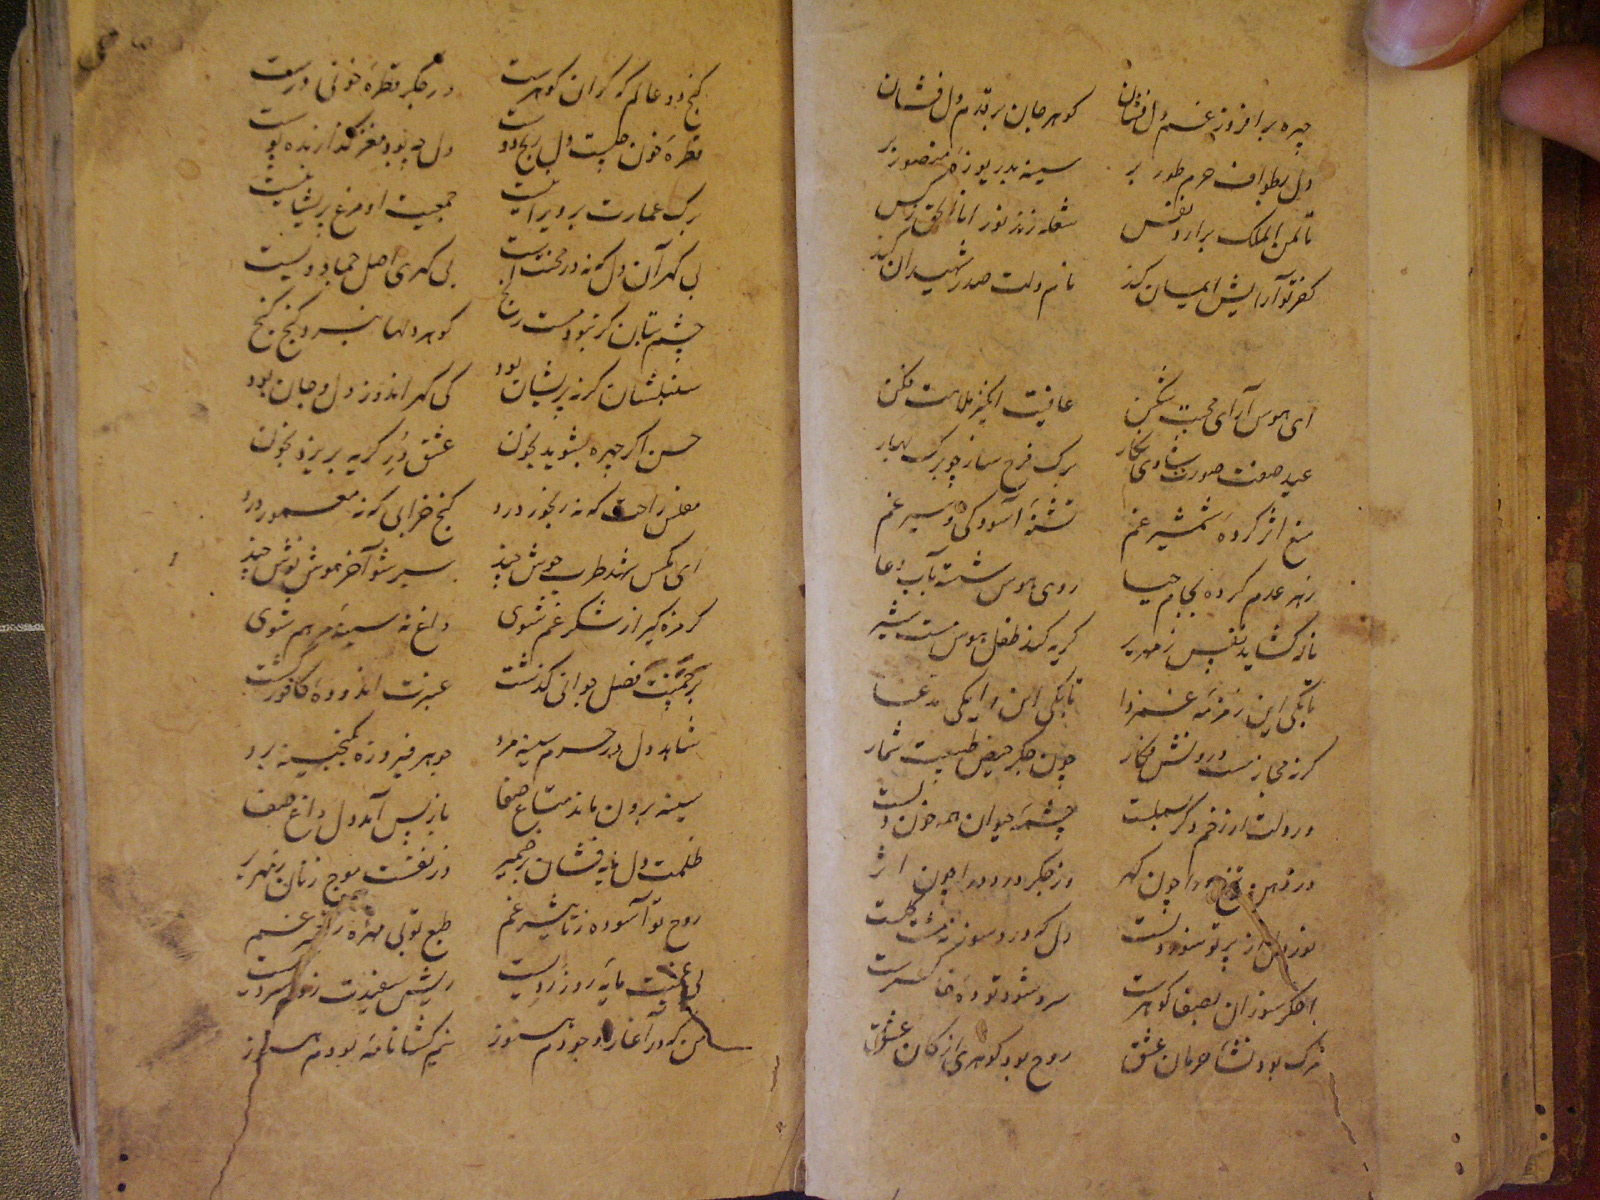 چهره برافروز غم دل فشان گوهر جان بر قدم دل فشان
دل بطواف حرم طور بر سینه بدریوزه منصور بر
تا لمن الملک برارد نفس شعله زند نور انا الحق ز خس
کفر تو آرایش ایمان کند ماتم دلت صدر شهیدان کند
ای هوس آرای محبت شکن عافیت انگیز ملامت فکن
عید صفت صورت شادی نگار برک فرح ساز چو برک بهار
منع اثر کرده شمشیر غم تشنه آسودگی و سیر غم
زهر عدم کرده بجام حیا روی هوس شسته بآب دعا
ناله کشاید نفس زمهریر گریه کند طفل هوس مست شیر
تا بکی این زمزمه غم‌زدا تا بکی این وایکی مدعا
گر ز مجازست درونش فکار چون جگر حیض طبیعت شمار
در دلت ار زخم و گر بسملیست چشمه حیوان همه خون دلست
در دهن را چون گهر در جگر درد را چون اثر
نور دل از پرتو سوز دلست دل که درو سوز نه مشت گلست
اخگر سوزان بصفا گوهرست سرد شود توده خاکسترست
ترک بود نشأ حرمان عشق روح بود گوهری از کان عشق
گنج دو عالم که گران گوهرست در جگر قطره خونی درست
قطره خون چیست دل رنج دوست دل چه بود مغز گدازنده پوست
برک عمارت بر ویرانیست جمعیت او مرغ پریشانیست
بی گهر آن دل که نه در محنتست بی گهری اصل جمادیتست
چشم بتان گر نبود مست رنج گوهر دلها نبرد گنج گنج
سنبلشان گر نه پریشان بود کی گهر اندوز دل و جان بود
حسن اگر چهره بشوید بخون عشق در گریه بریزد بخون
مفلس راحت که نه رنجور درد گنج خرابی که نه معمور درد
ای مگس شهد طرب جوش چند سیر شو آخر هوس نوش چند
گر مزه گیر از شکر غم شوی داغ نه سینه مرهم شوی
بر چمنت فصل جوانی گذشت عبرت اندوده کافور گشت
شاهد دل در حرم سینه مرد جوهر فیروزه گنجینه برد
سینه برون ماند متاع صفا باز پس آمد دل داغ صفا
ظلمت دل مایه فشان بر ضمیر در نفست موج زنان زمهریر
روح تو آسوده ز تاثیر غم طبع تو بی بهره ز اکسیر غم
بی مایه روز زدیست ریش سفیدت ز سردیست
من که در آغاز وجودم هنوز نیم گشا نامه بودم هنوز